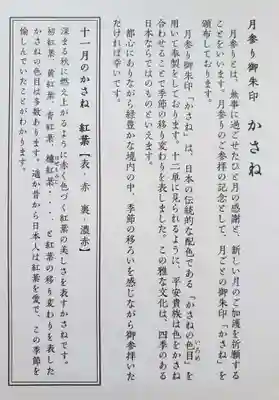 月参り御朱印 かさね
月参りとは、無事に過ごせたひと月の感謝と、新しい月のご加護を祈願する
ことをいいます。月参りのご参拝の記念として、月ごとの御朱印「かさね」を
頒布しております。
月参り御朱印「かさね」は、日本の伝統的な配色である「かさねの色目」を
いろめ
用いて奉製をしております。十二単に見られるように、平安貴族は色をかさね
合わせることで季節の移り変わりを表しました。この雅な文化は、四季のある
日本ならではのものといえます。
都心にありながら緑豊かな境内の中、季節の移ろいを感じながら御参拝いた
だければ幸いです。
十一月のかさね 紅葉【表 赤 裏 濃赤】
深まる秋に燃え上がるように赤く色づく紅葉の美しさを表すかさねです。
初紅葉、黄紅葉、青紅葉、櫨紅葉・・・、と紅葉の移り変わりを表した
はぜもみじ
かさねの色目は多数あります。遥か昔から日本人は紅葉を愛で、この季節を
愉しんでいたことがわかります。